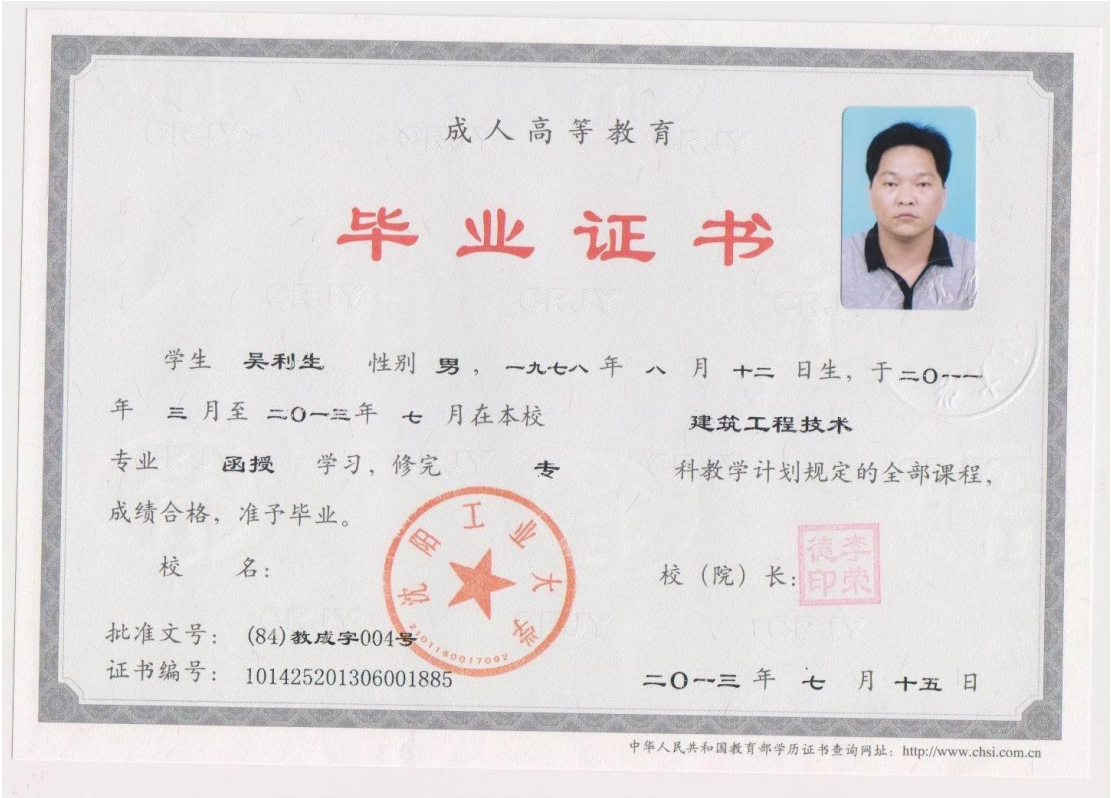 成人高等教育
毕业证书
学生 吴利生 性别 男，一九七八年 八 月 十二 日生，于二〇一一
年 三月至 二〇一三年 七 月在本校 建筑工程技术
专业 函授 学习，修完 专 科教学计划规定的全部课程，
成绩合格，准予毕业。
校 名：
沈阳工业大学
2101180017092
校（院）长：
李荣德印
批准文号：(84)教成字004号
证书编号：101425201306001885
二〇一三 年 七 月 十五 日
中华人民共和国教育部学历证书查询网址：http://www.chsi.com.cn